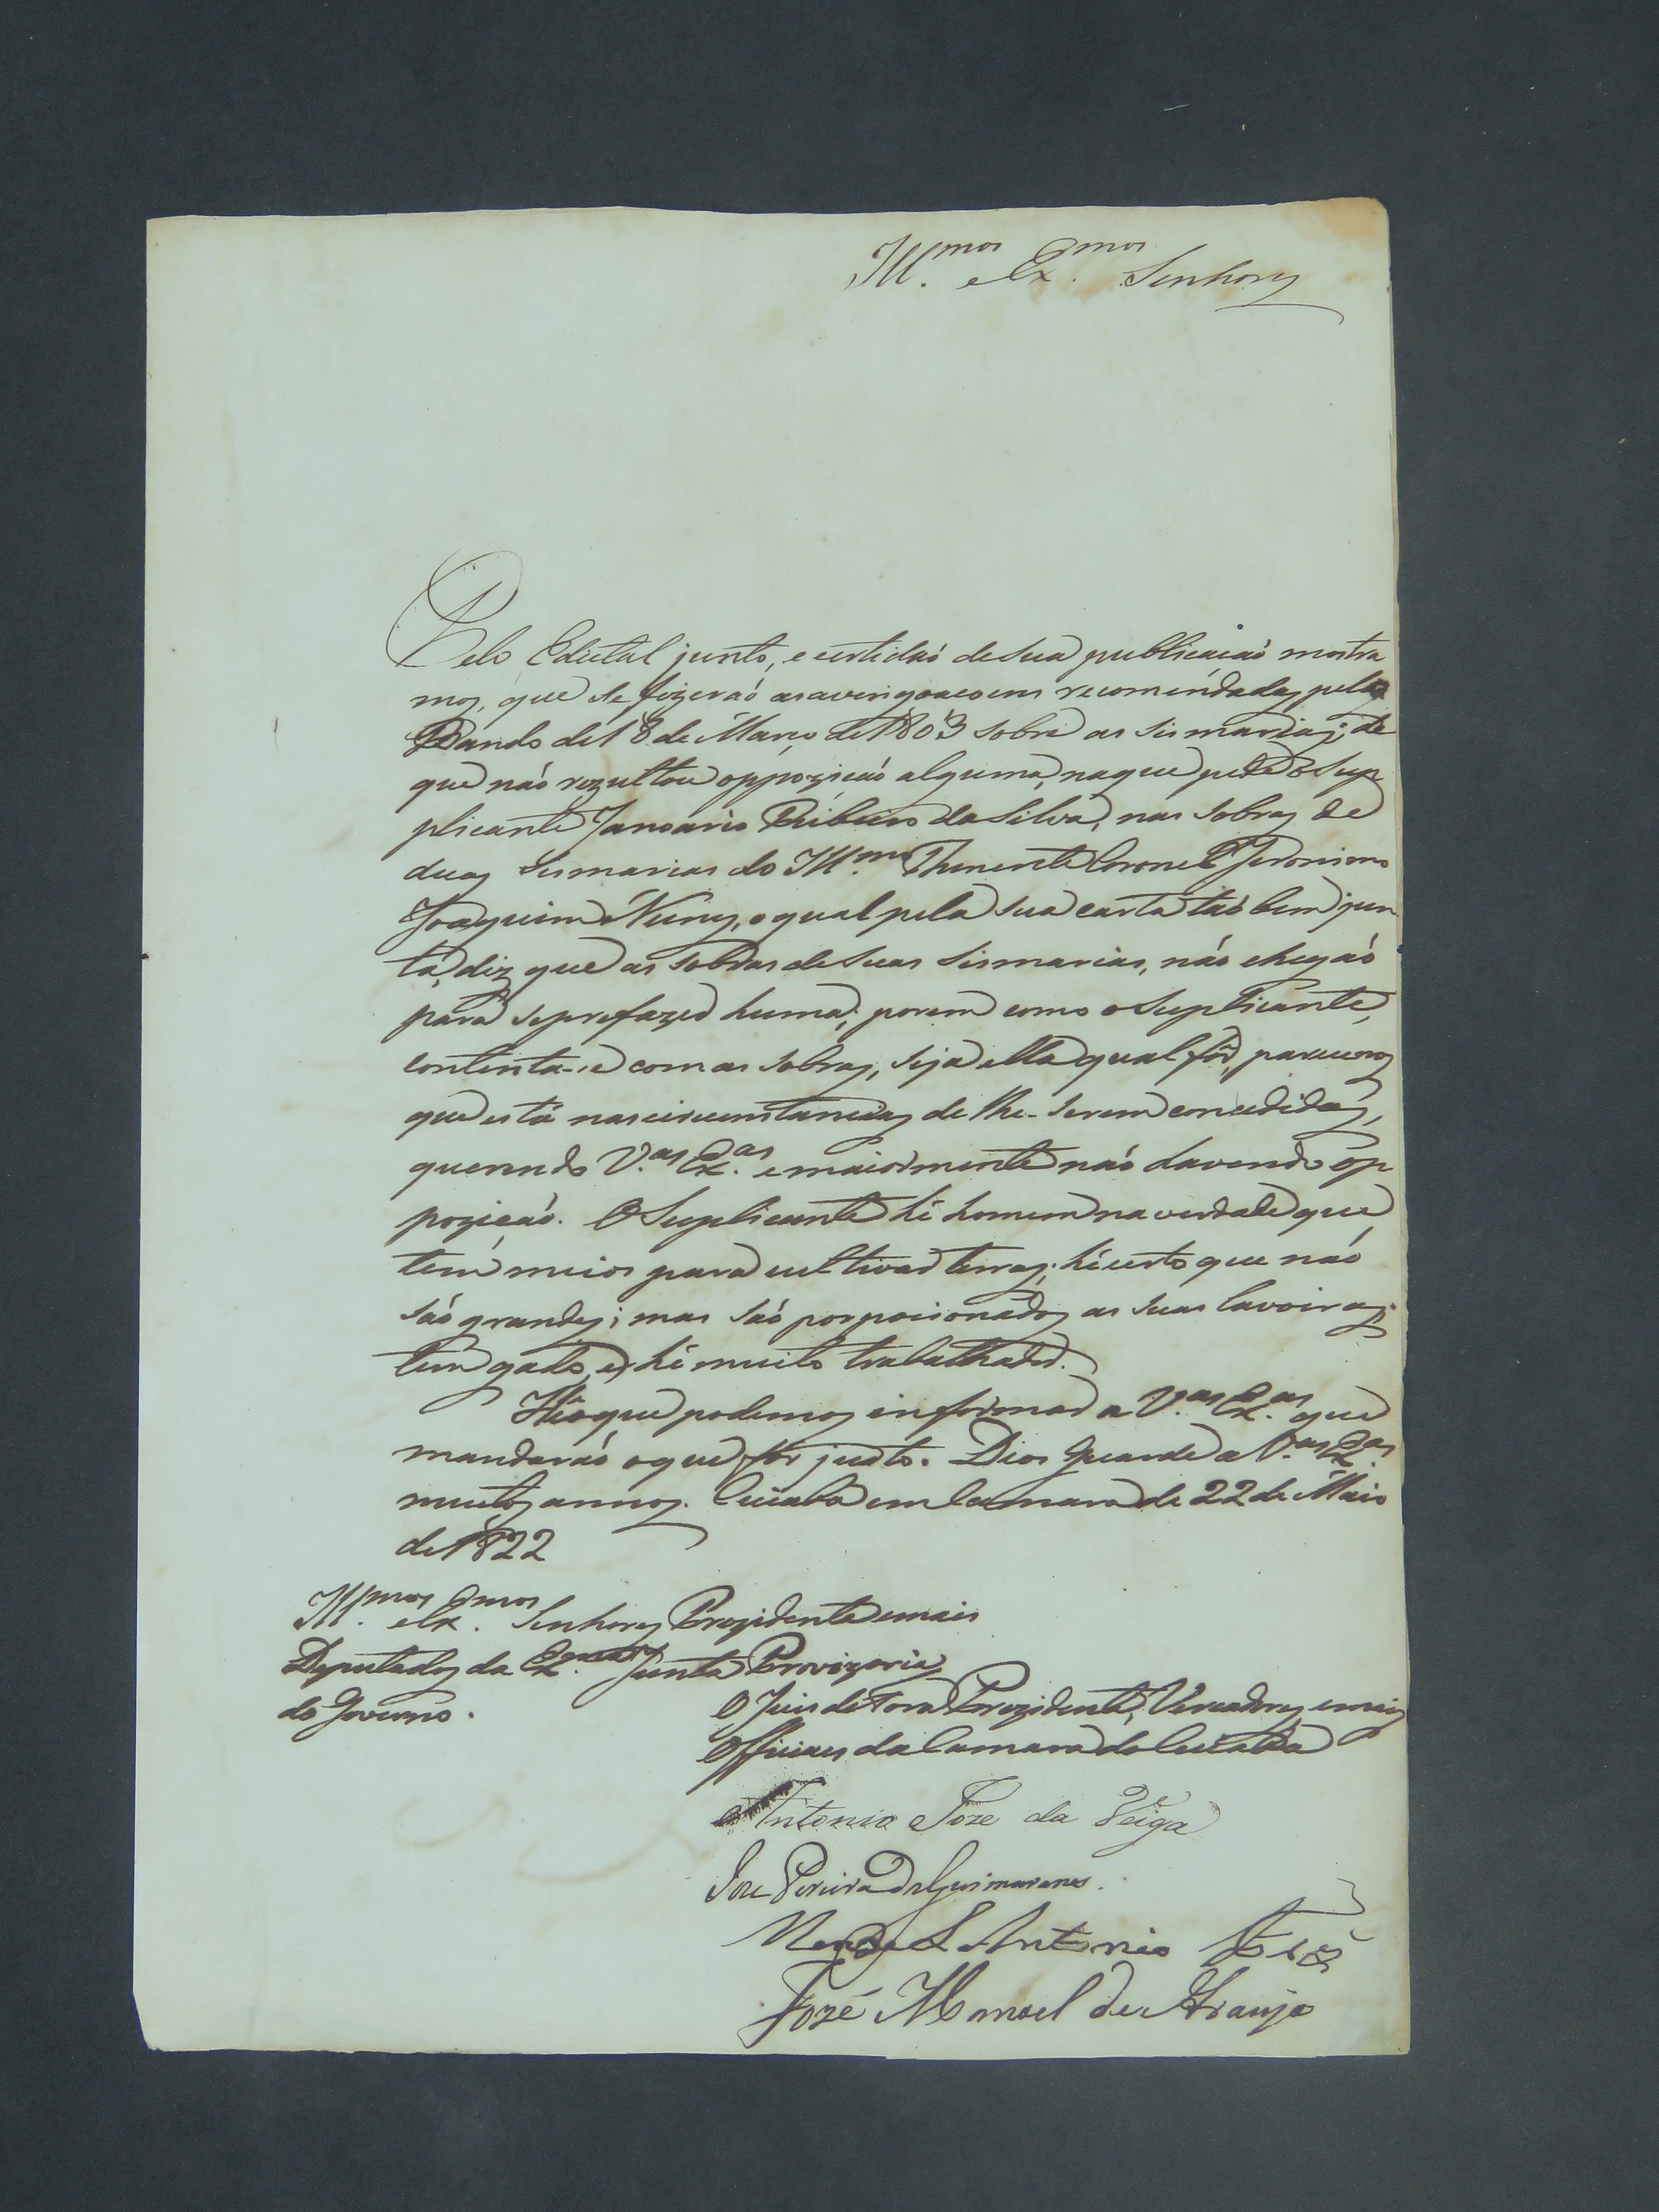 Ill.mos e Ex.mos Senhores
Pelo Edictal junto, e certidaõ de sua publicaçaõ mostra
mos, que se fizeraõ as averigoaçoens recomendadas pelo
Bando de 18 de Março de 1803 sobre as sismarias; de
que naõ rezultou oppozicaõ alguma, na que pede o Sup
plicante Janoario Ribeiro da Silva, nas sobras de
duas sismarias do Ill.mo Thenente Coronel Jeronimo
Joaquim Nunes, o qual pela sua carta taõ bem jun
ta, diz que as sobras de suas sismarias, naõ chegaõ
para se prefazer huma; porem como o Suplicante,
contenta-se com as sobras, seja ella qual fôr, parecenos
que está nas circumstancias de lhe-serem concedidas,
querendo V.as Ex.as e maiormente naõ havendo op
pozicaõ. O Suplicante hé homem na verdade que
tem meios para cultivar terras; hé certo que naõ
saõ grandes; mas saõ porporcionados as suas lavoiras;
tem gado, e hé muito trabalhador.
Hé o que podemos informar a V.as Ex.as que
mandaraõ o que for justo. Deos Guarde a V.as Ex.as
muitos annos. Cuiabá em Camara de 22 de Maio
de 1822
Ill.mos e Ex.mos Senhores Prezidente e mais
Deputados da Ex.ma Junta Provizoria
do Governo.
O Juis de Fora Prezidente, Vereadores, e mais
Officiaes da Camara do Cuiabá
Antonio Joze da Veiga
Joze Pereira Dos Guimaraens.
Antonio
José Manoel de Araujo